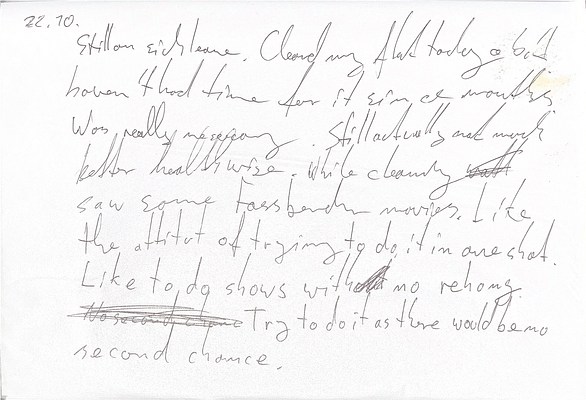 22.10.
Still on sick leave. Cleand my flat today a bit
haven't had time for it since months
Was really nessecary. Still actually not much
better healthwise. While cleaning
saw some Fassbender movies. Like
the attitut of trying to do it in one shot.
Like to do shows with no rehong.
No second chance Try to do it as there would be no
second chance.